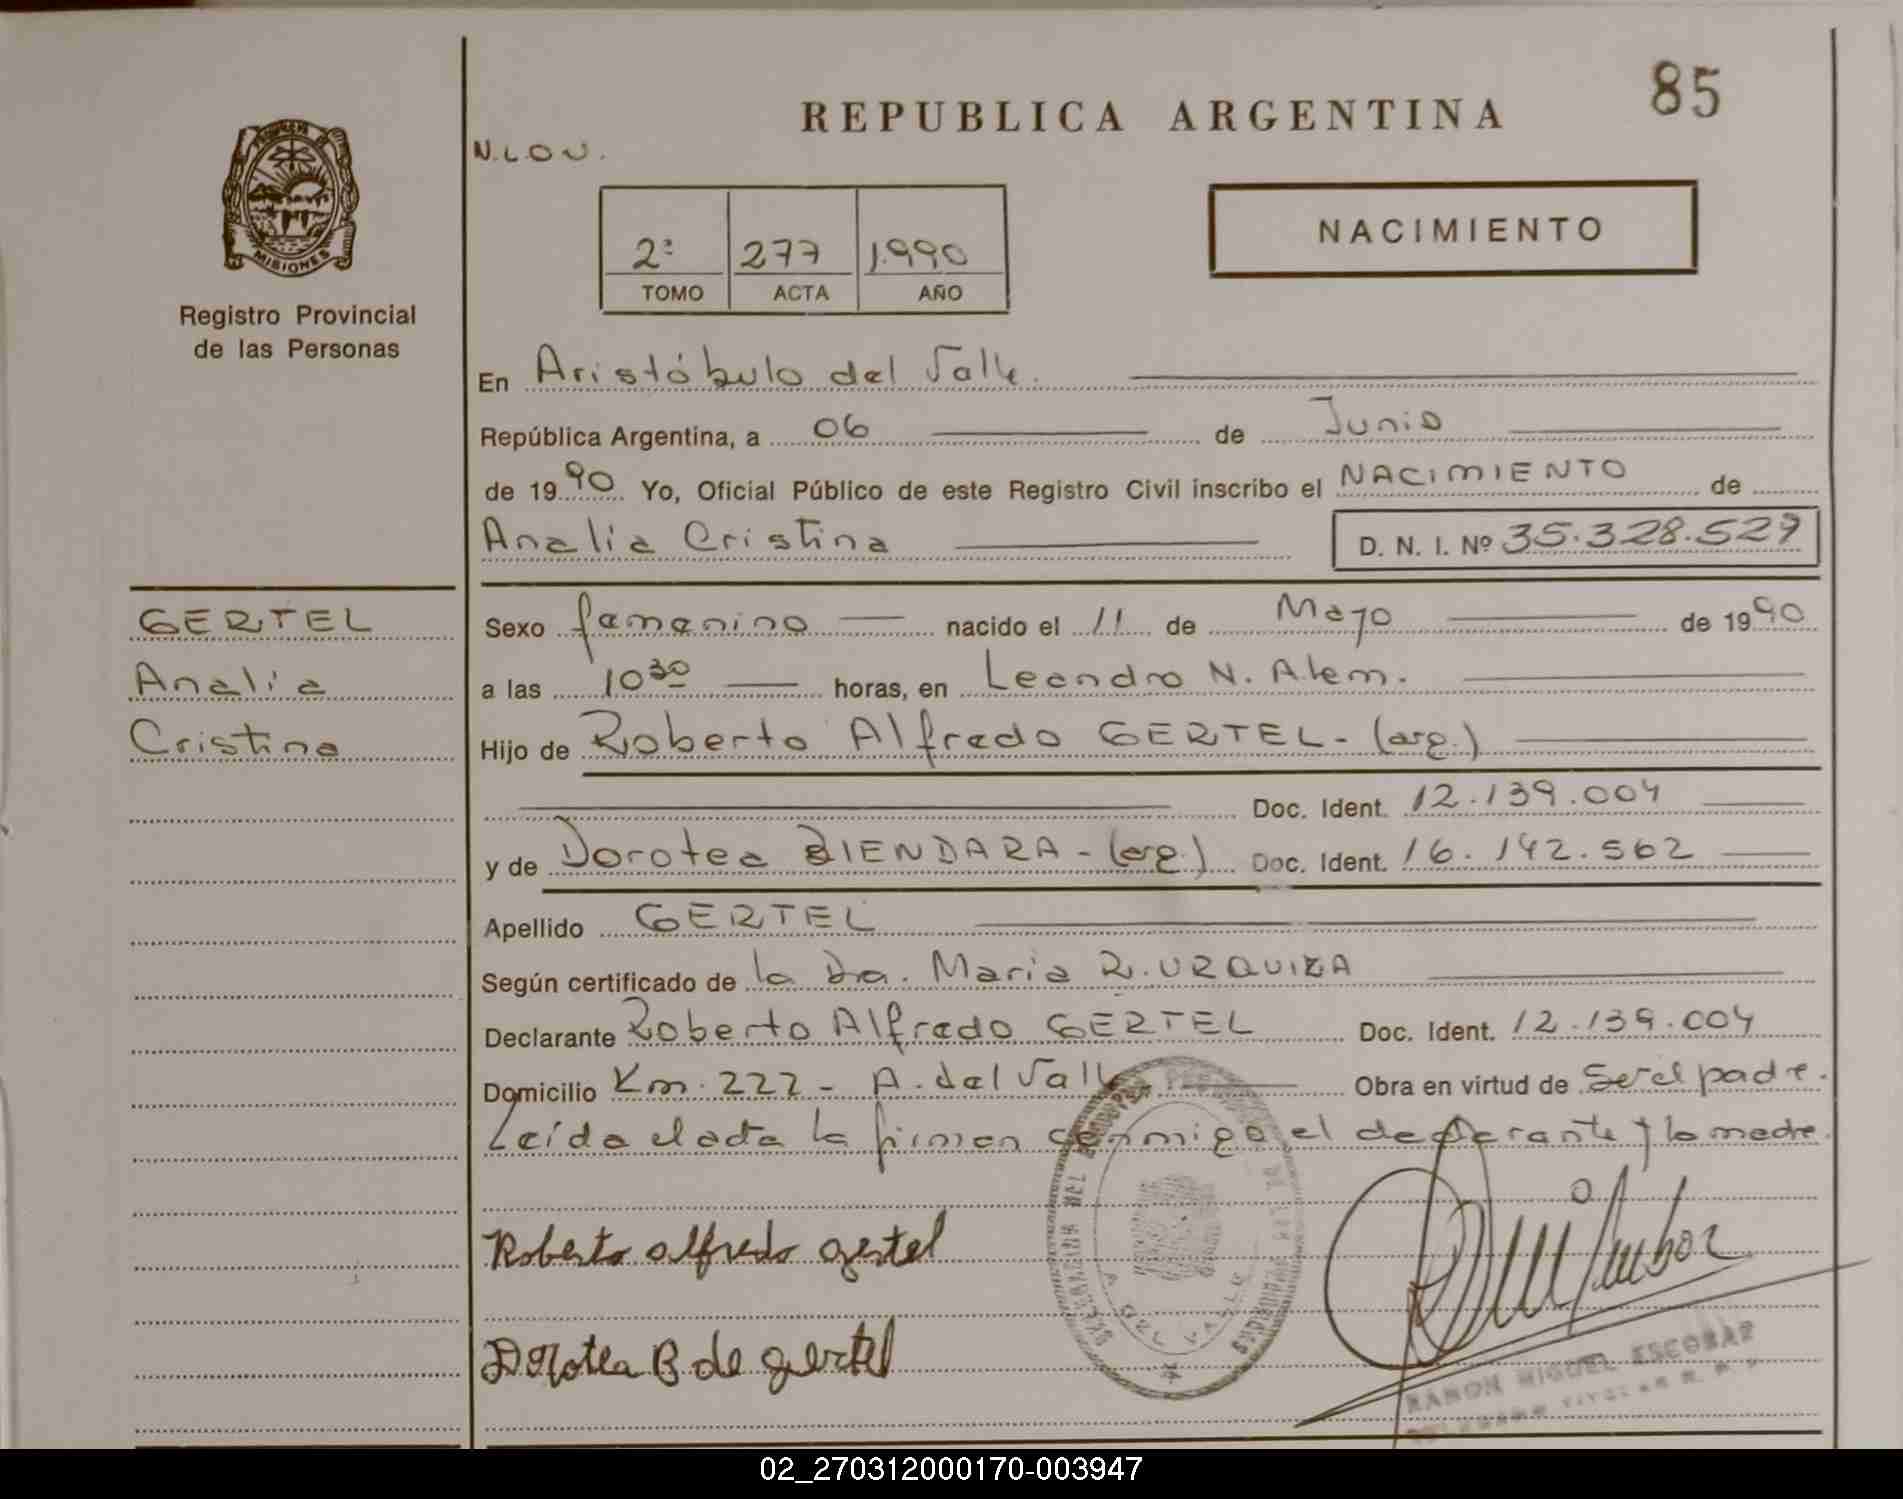 85
REPUBLICA ARGENTINA
N.L.O.V.
MISIONES
Registro Provincial
de las Personas
2ª 277 1.990
TOMO ACTA AÑO
NACIMIENTO
En Aristóbulo del Valle.
República Argentina, a 06 de Junio
de 1990 Yo, Oficial Público de este Registro Civil inscribo el NACIMIENTO de
Analia Cristina D. N. I. Nº 35.328.529
GERTEL
Analia
Cristina
Sexo femenino nacido el 11 de Mayo de 1990
a las 10 30 horas, en Leandro N. Alem.
Hijo de Roberto Alfredo GERTEL - (arg.)
Doc. Ident. 12.139.004
y de Dorotea BIENDARA - (arg.) Doc. Ident. 16.142.562
Apellido GERTEL
Según certificado de la Dra. Maria R. URQUIZA
Declarante Roberto Alfredo GERTEL Doc. Ident. 12.139.004
Domicilio Km. 222 - A. del Valle Obra en virtud de Ser el padre.
Leída el acta la firman conmigo el declarante y la madre.
Roberto alfredo gertel
Dorotea B de gertel
A. DEL VALLE
RAMON MIGUEL ESCOBAR
02_270312000170-003947